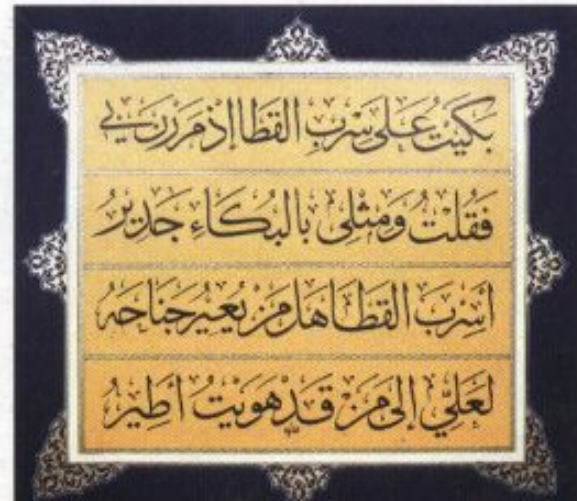 بَكَيْتُ عَلَى سِرْبِ القَطَا إذْ مَرَرْنَ بِي
فَقُلْتُ وَمِثْلِى بِالبُكَاءِ جَدِيرُ
أَسِرْبَ القَطَا هَلْ مَنْ يُعِيرُ جَنَاحَهُ
لَعَلِّي إلَى مَنْ قَدْ هَوَيْتُ أَطِيرُ